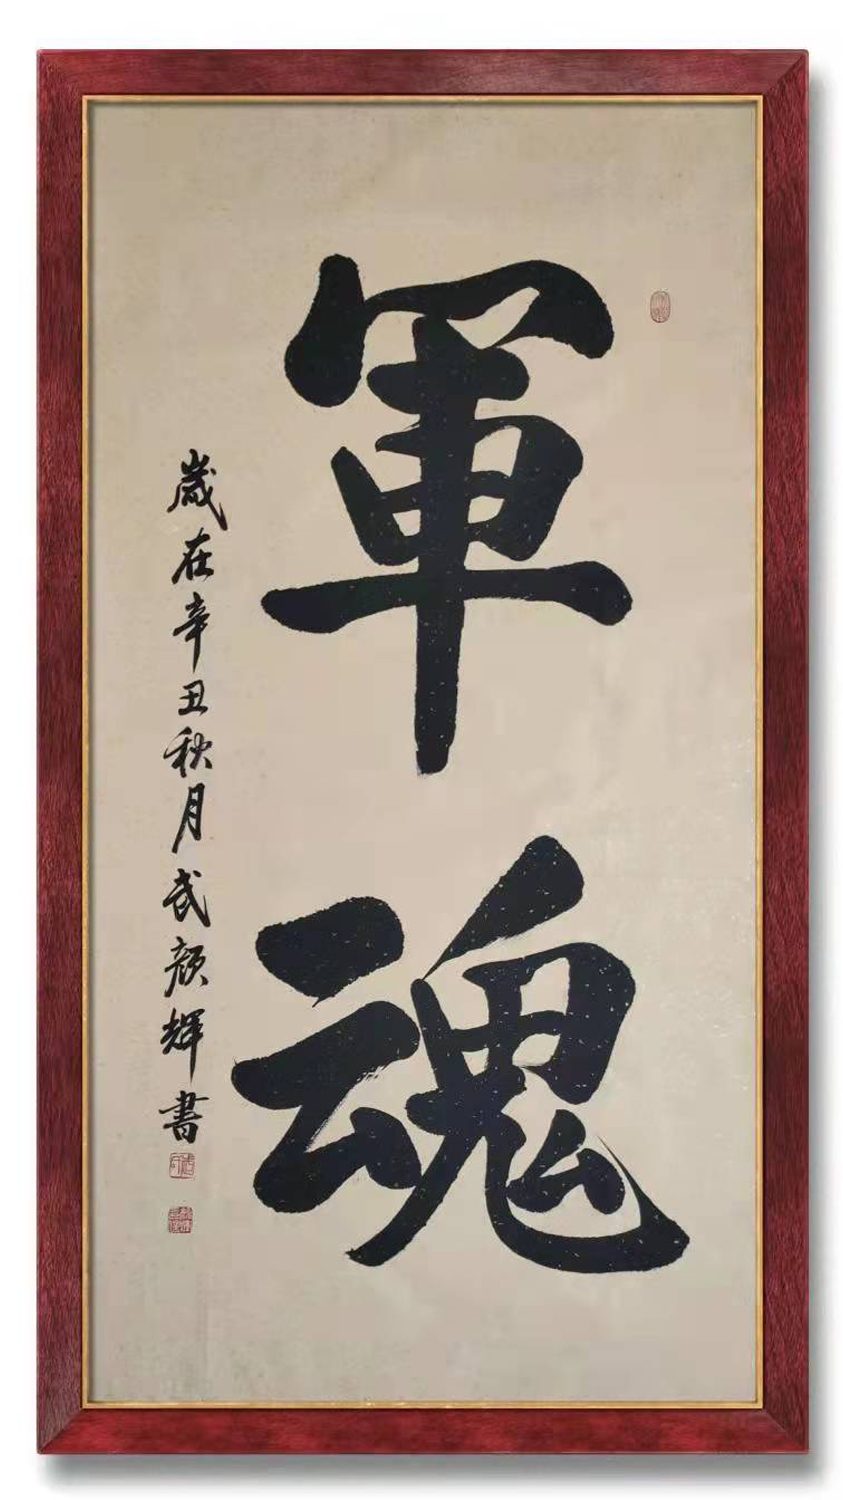 軍魂
歲在辛丑秋月武顏輝書